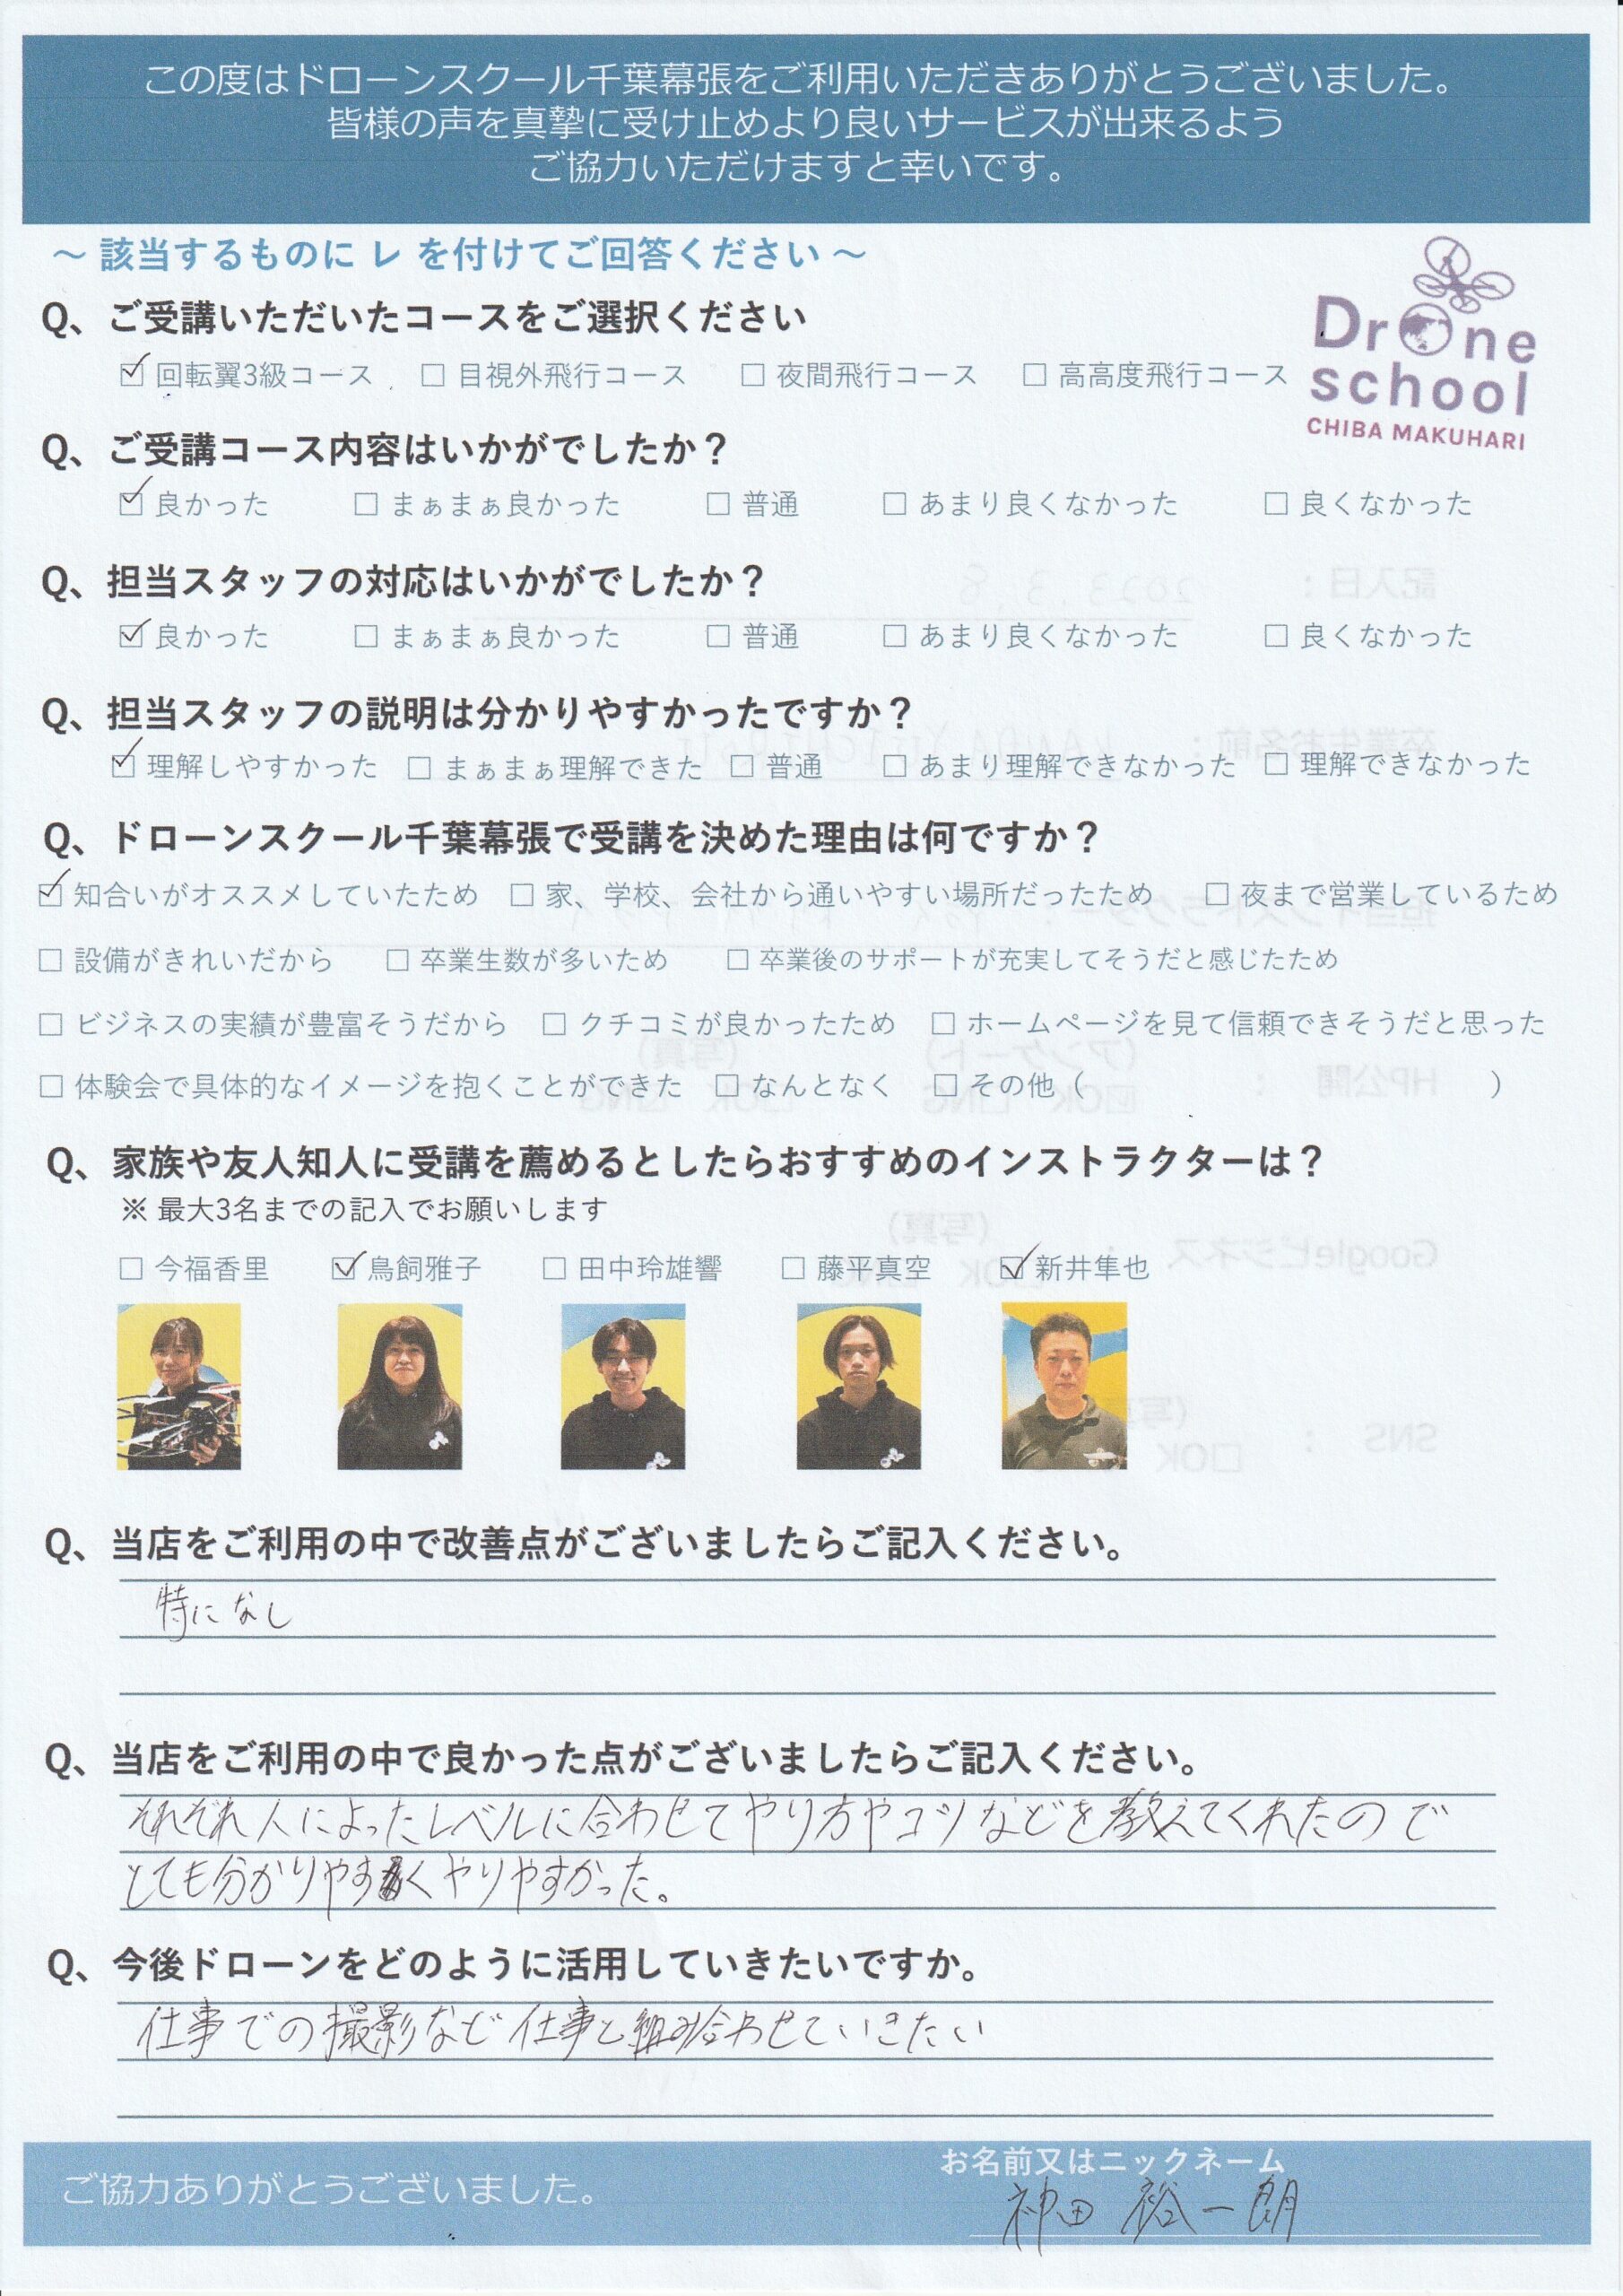 この度はドローンスクール千葉幕張をご利用いただきありがとうございました。
皆様の声を真摯に受け止めより良いサービスが出来るよう
ご協力いただけますと幸いです。
～ 該当するものに レ を付けてご回答ください ～
Drone
school
CHIBA MAKUHARI
Q、ご受講いただいたコースをご選択ください
☑ 回転翼3級コース □ 目視外飛行コース □ 夜間飛行コース □ 高高度飛行コース
Q、ご受講コース内容はいかがでしたか？
☑ 良かった □ まぁまぁ良かった □ 普通 □ あまり良くなかった □ 良くなかった
Q、担当スタッフの対応はいかがでしたか？
☑ 良かった □ まぁまぁ良かった □ 普通 □ あまり良くなかった □ 良くなかった
Q、担当スタッフの説明は分かりやすかったですか？
☑ 理解しやすかった □ まぁまぁ理解できた □ 普通 □ あまり理解できなかった □ 理解できなかった
Q、ドローンスクール千葉幕張で受講を決めた理由は何ですか？
☑ 知合いがオススメしていたため □ 家、学校、会社から通いやすい場所だったため □ 夜まで営業しているため
□ 設備がきれいだから □ 卒業生数が多いため □ 卒業後のサポートが充実してそうだと感じたため
□ ビジネスの実績が豊富そうだから □ クチコミが良かったため □ ホームページを見て信頼できそうだと思った
□ 体験会で具体的なイメージを抱くことができた □ なんとなく □ その他（ ）
Q、家族や友人知人に受講を薦めるとしたらおすすめのインストラクターは？
※ 最大3名までの記入でお願いします
□ 今福香里 ☑ 鳥飼雅子 □ 田中玲雄響 □ 藤平真空 ☑ 新井隼也
Q、当店をご利用の中で改善点がございましたらご記入ください。
特になし
Q、当店をご利用の中で良かった点がございましたらご記入ください。
それぞれ人によったレベルに合わせてやり方やコツなどを教えてくれたので
とても分かりやすくやりやすかった。
Q、今後ドローンをどのように活用していきたいですか。
仕事での撮影など仕事と組み合わせていきたい
ご協力ありがとうございました。
お名前又はニックネーム
神田 裕一朗